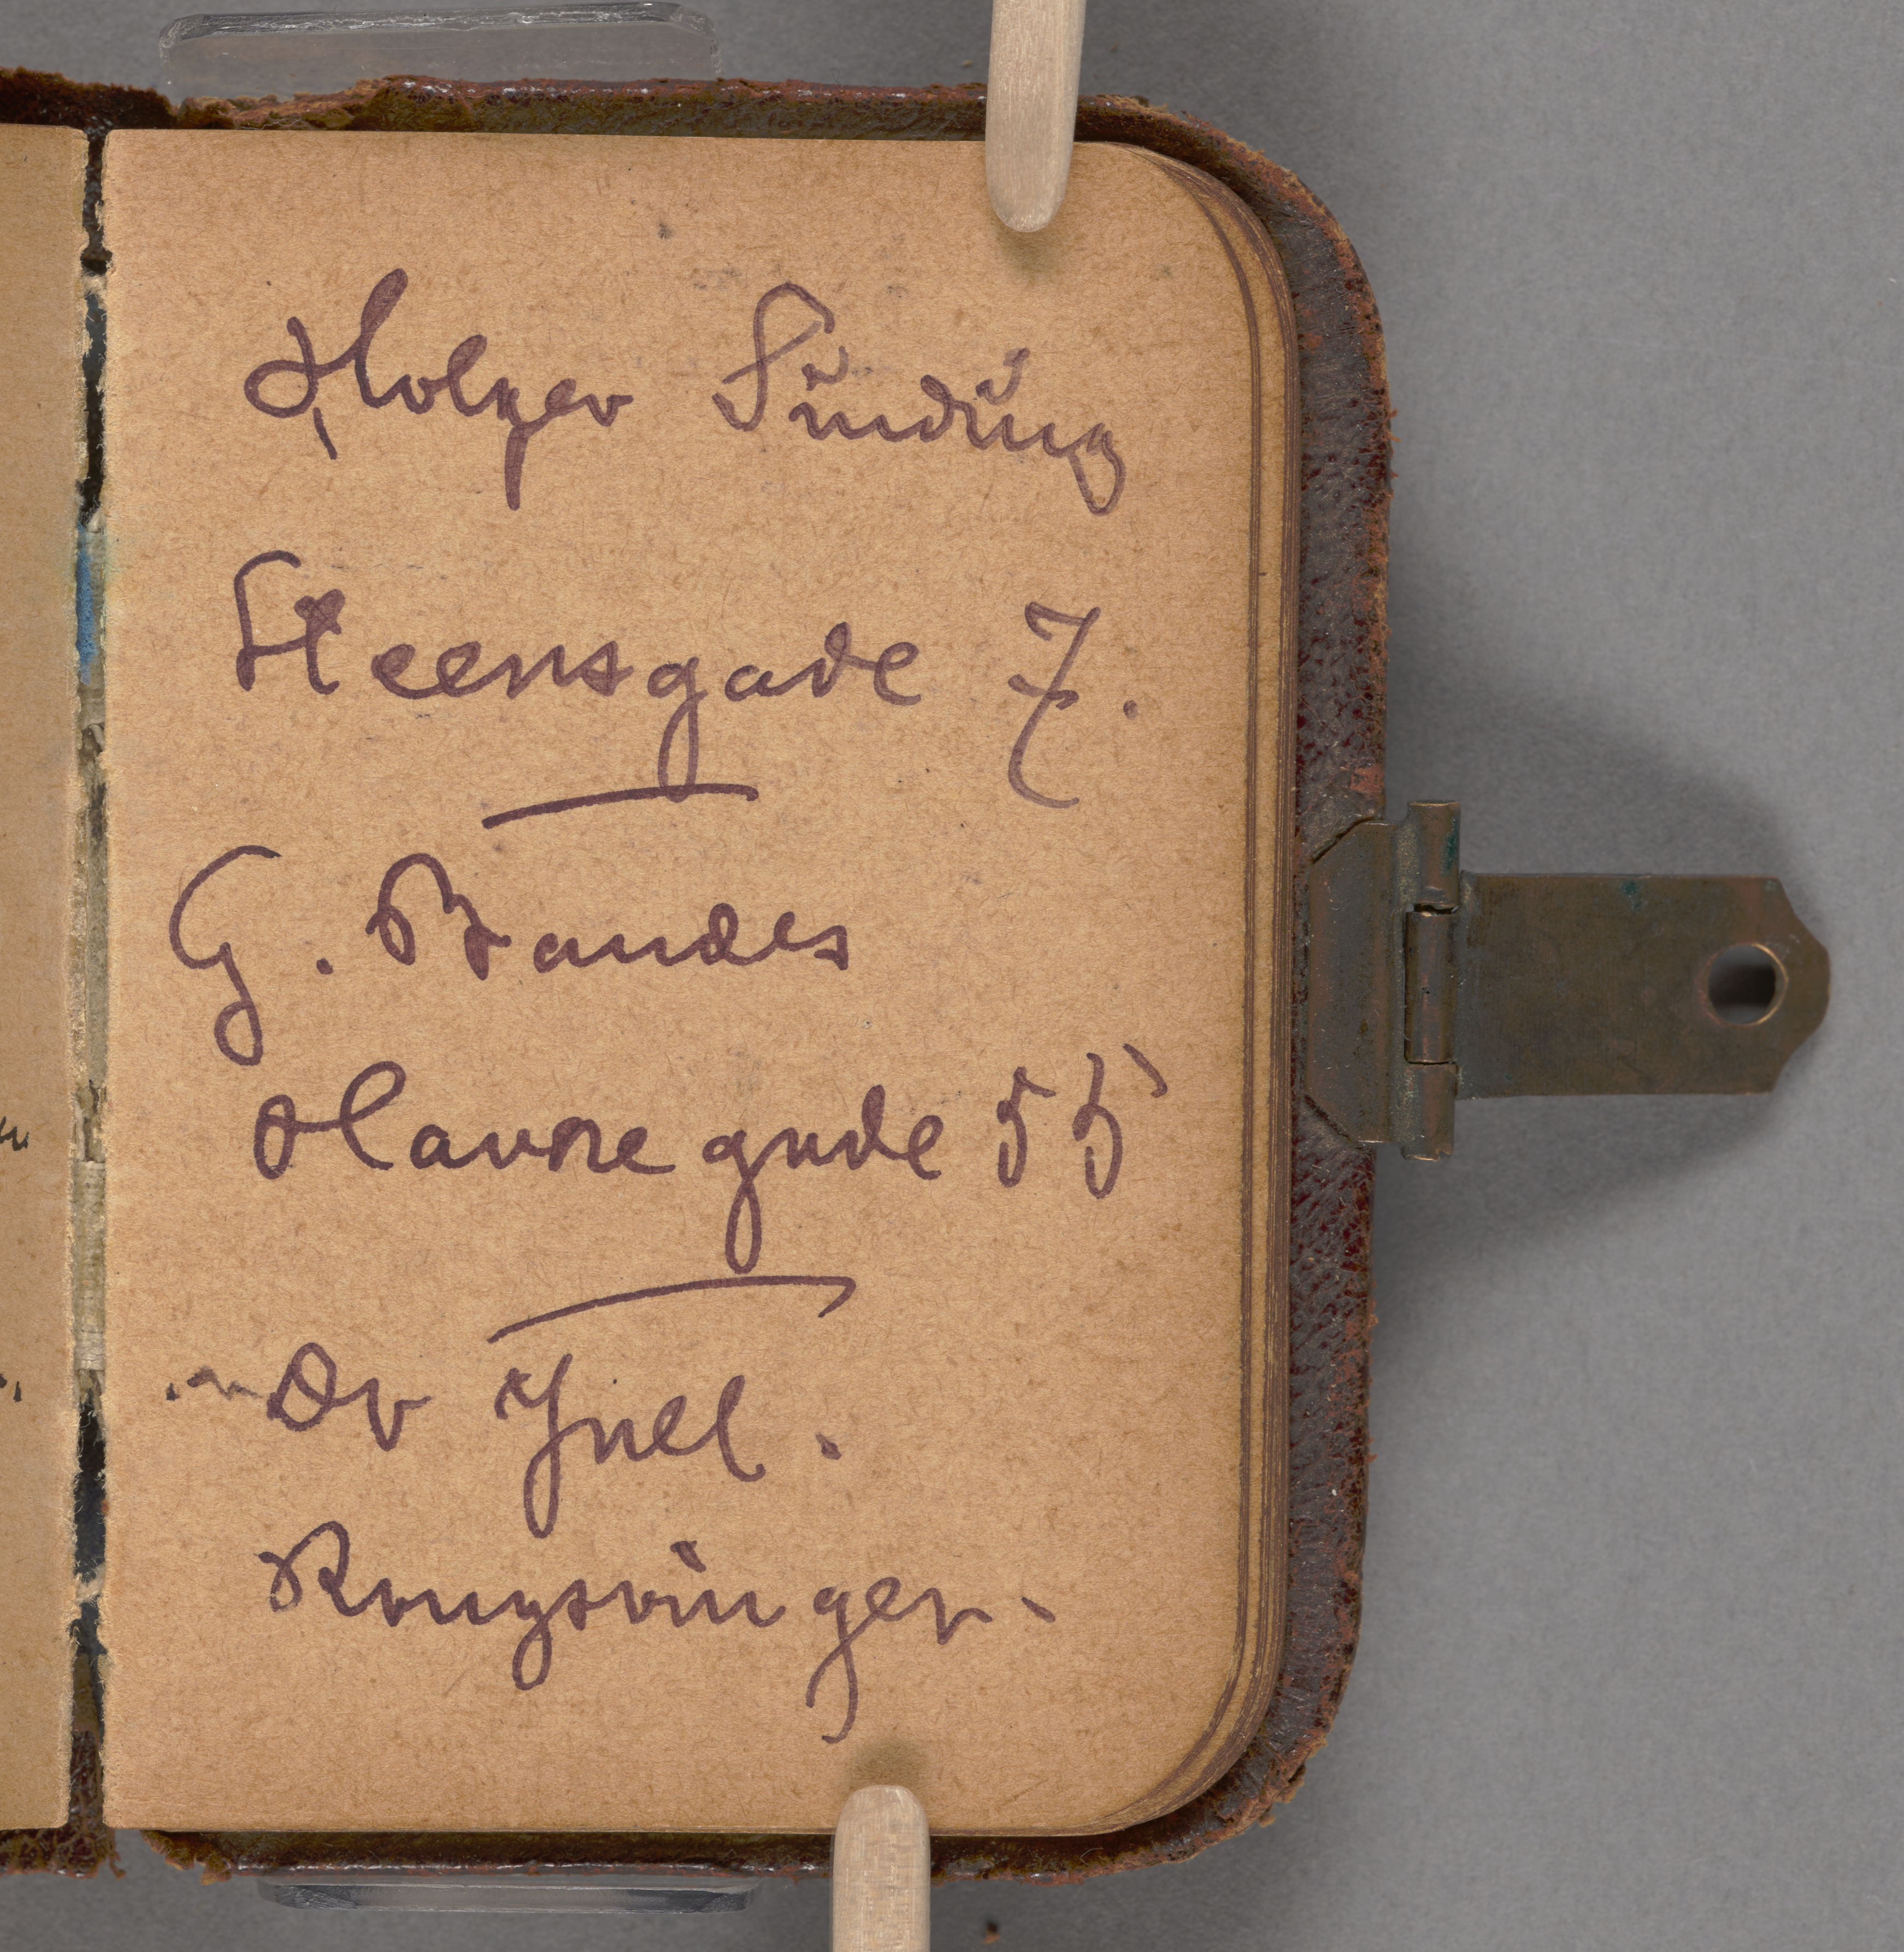 Holger Sinding
Steensgade 7.
G. Brandes
Havnegade 55
Dr Juell.
Kongsvinger.